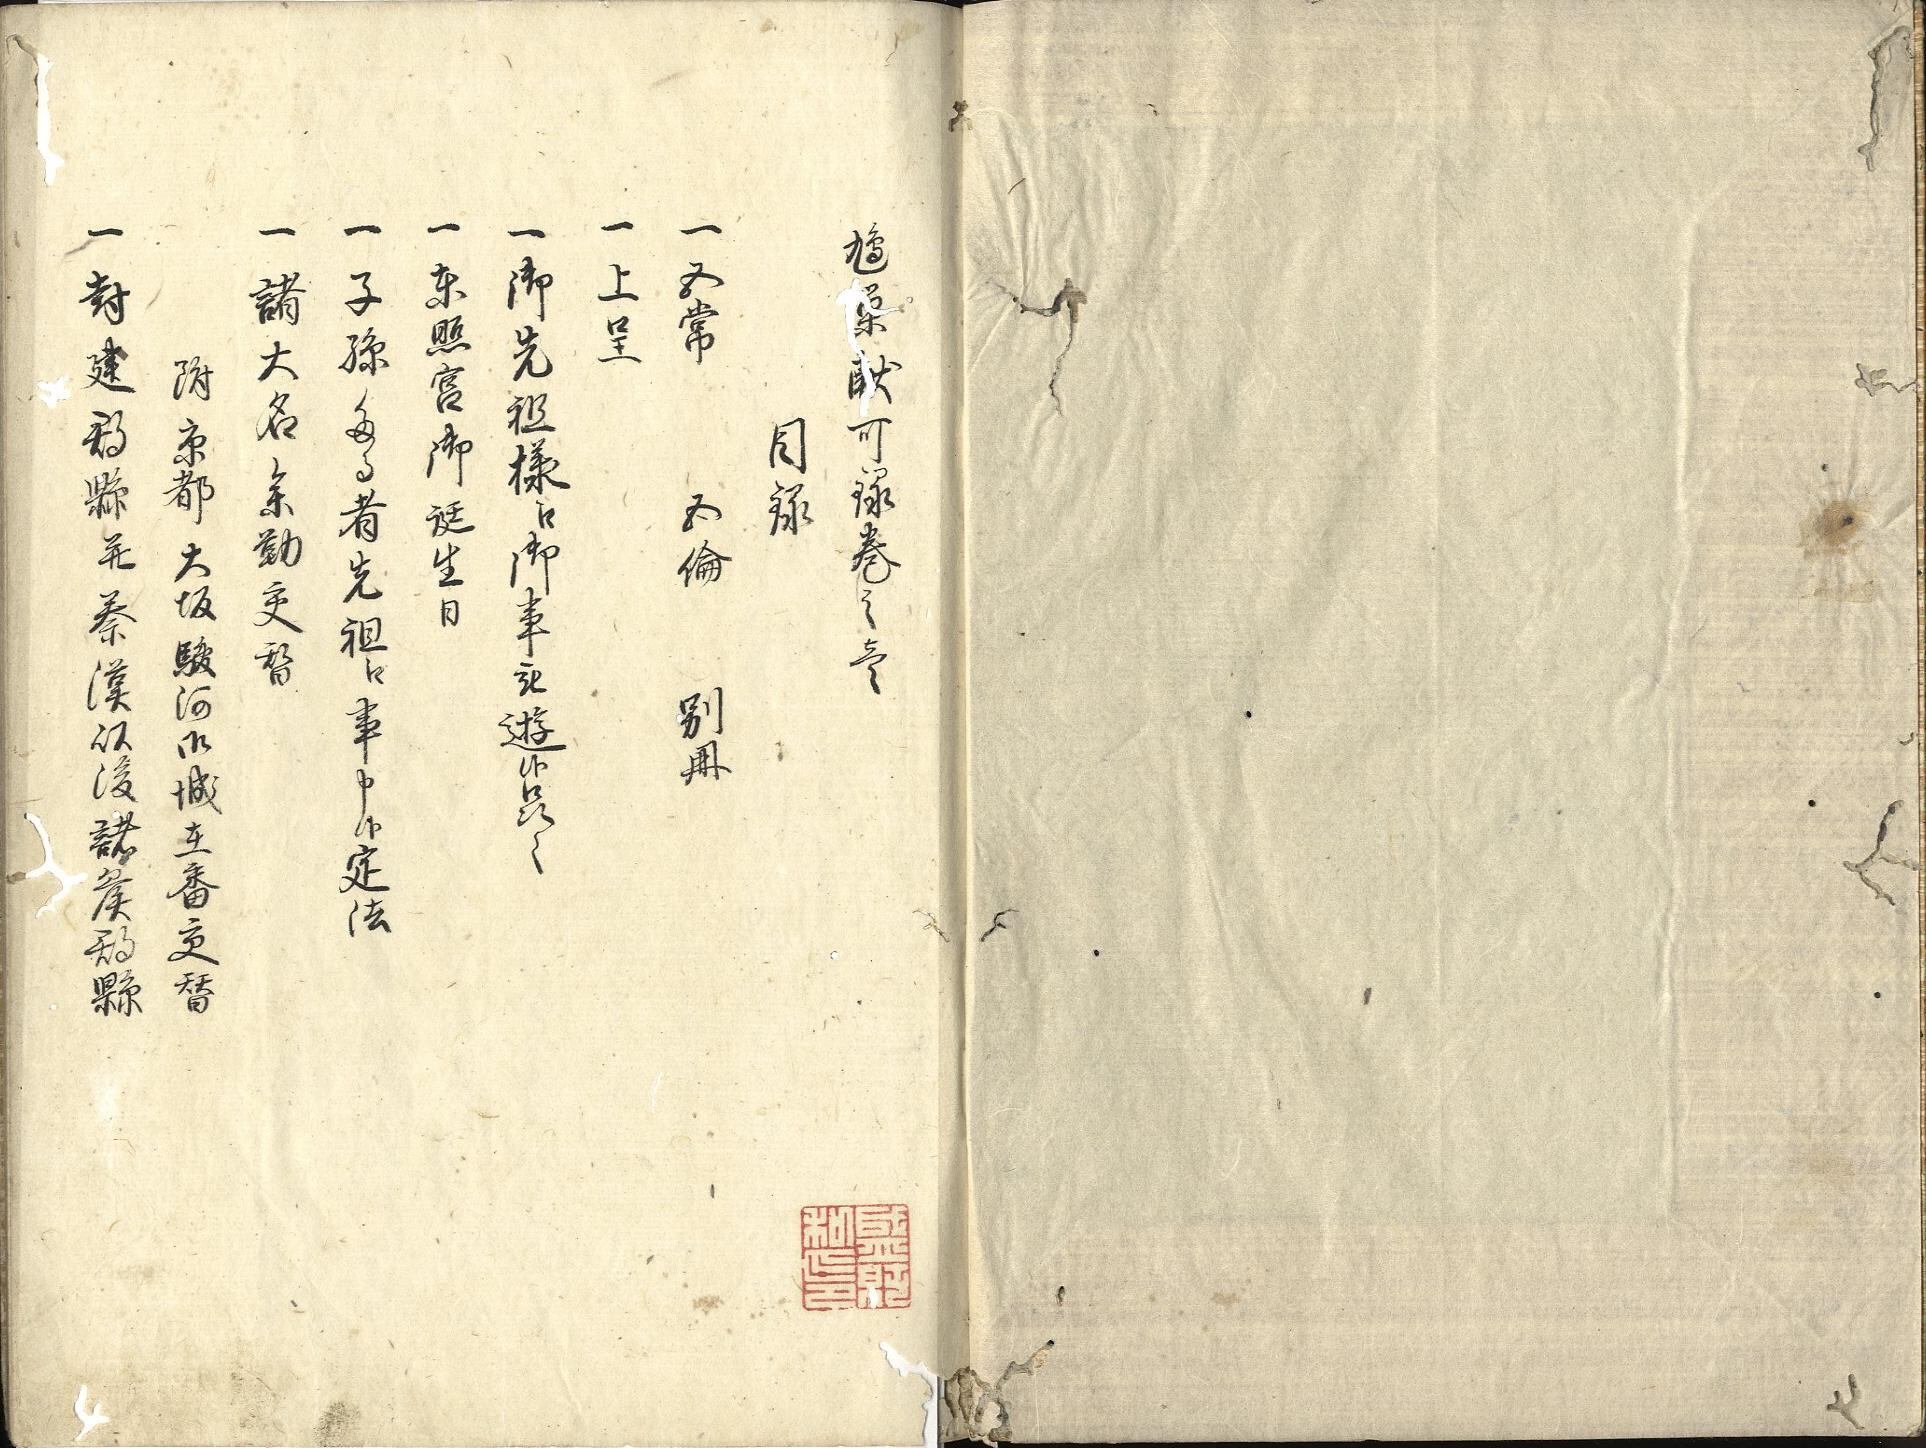 鳩巣献可録巻之壱
目録
一五常　五倫　別冊
一上呈
一御先祖様ゟ御事被遊候品々
一東照宮御誕生日
一子孫多き者先祖ゟ事申候定法
一諸大名参勤交替
附京都大坂駿河御城在番交替
一封建郡縣并秦漢以後諸侯郡縣